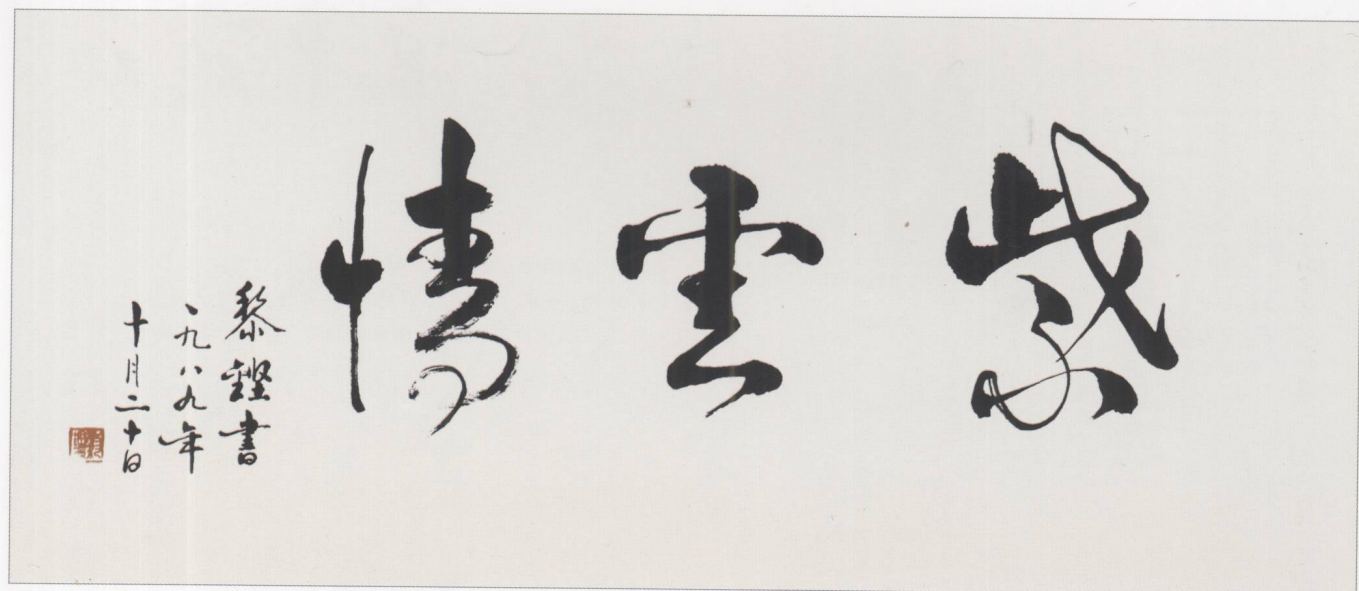 紫雲情
黎鏗書
一九八九年
十月二十日